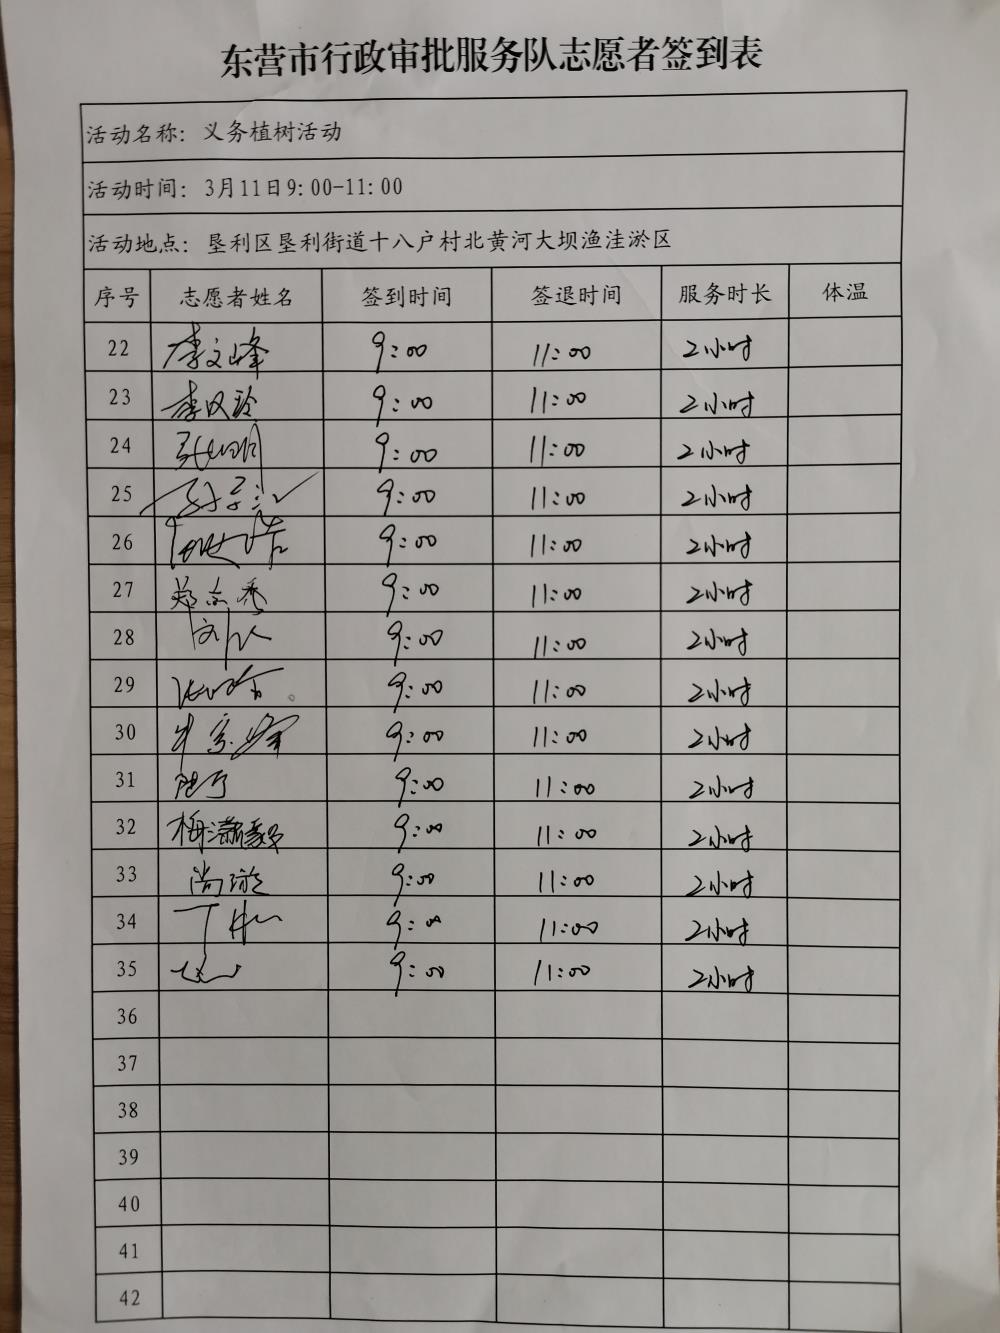 东营市行政审批服务队志愿者签到表
活动名称：义务植树活动
活动时间：3月11日9:00-11:00
活动地点：垦利区垦利街道十八户村北黄河大坝渔洼淤区
序号 志愿者姓名 签到时间 签退时间 服务时长 体温
22 李文峰 9:00 11:00 2小时
23 9:00 11:00 2小时
24 9:00 11:00 2小时
25 9:00 11:00 2小时
26 9:00 11:00 2小时
27 9:00 11:00 2小时
28 9:00 11:00 2小时
29 9:00 11:00 2小时
30 9:00 11:00 2小时
31 9:00 11:00 2小时
32 梅潇毅 9:00 11:00 2小时
33 尚璇 9:00 11:00 2小时
34 9:00 11:00 2小时
35 9:00 11:00 2小时
36
37
38
39
40
41
42